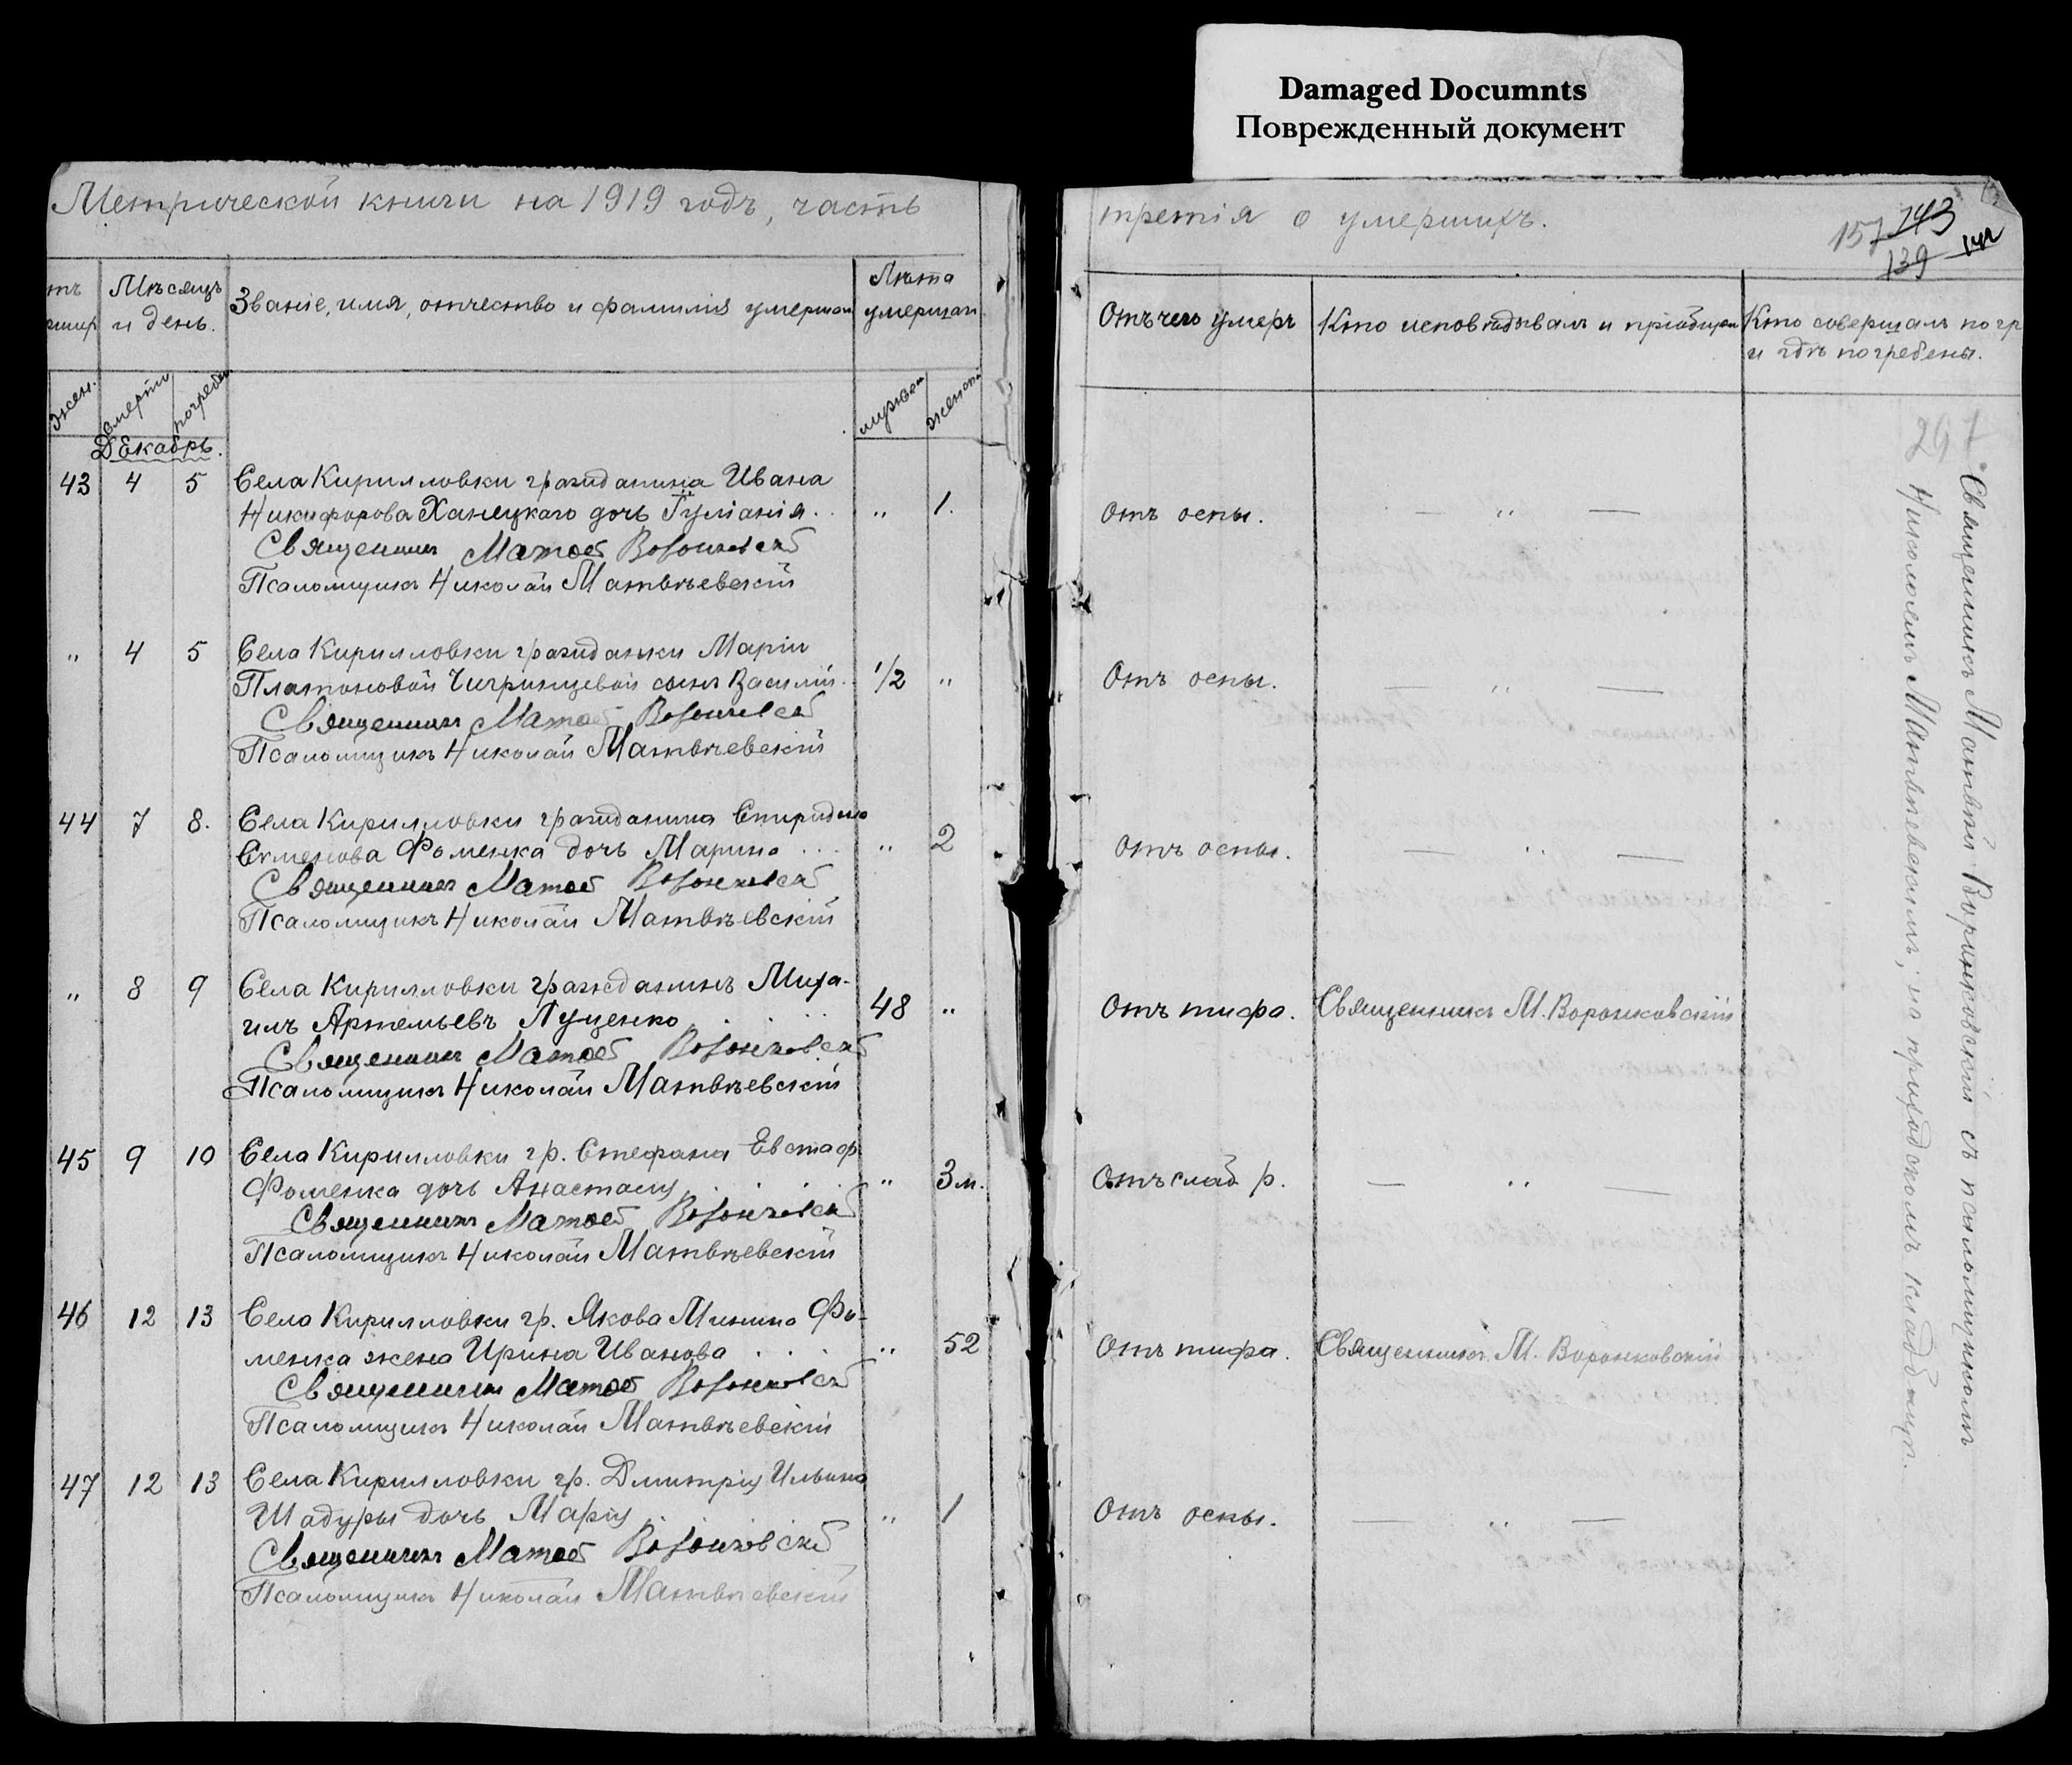 Damaged Documnts
Поврежденный документ
Метрической книги на 1919 годъ, часть
третія о умершихъ.
157 143
139 142
Мѣсяцъ
и день.
Званіе, имя, отчество и фамилія умершаго
Лѣта
умершаго
Отъ чего умеръ
Кто исповѣдывалъ и пріобщалъ
Кто совершалъ погр
и гдѣ погребены.
жен.
смерти
погребен
мужск
женска
Декабрь.
297
43 4 5 Села Кирилловки гражданина Ивана
Никифорова Ханецкаго дочь Гуліанія.. " 1. Отъ оспы. — " —
Священникъ Матвѣй Воронковскій
Псаломщикъ Николай Матвѣевскій
" 4 5 Села Кирилловки гражданки Маріи
Платоновой Чигринцевой сынъ Василій.. 1/2 " Отъ оспы. — " —
Священникъ Матвѣй Воронковскій
Псаломщикъ Николай Матвѣевскій
44 7 8. Села Кирилловки гражданина Спиридона
Семенова Фоменка дочь Марина ... " 2 Отъ оспы. — " —
Священникъ Матвѣй Воронковскій
Псаломщикъ Николай Матвѣевскій
" 8 9 Села Кирилловки гражданинъ Миха-
илъ Артемьевъ Луценко . . . 48 " Отъ тифа. Священникъ М. Воронковскій
Священникъ Матвѣй Воронковскій
Псаломщикъ Николай Матвѣевскій
45 9 10 Села Кирилловки гр. Стефана Евстаф.
Фоменка дочь Анастасія . . . . " 3 м. Отъ слаб р. — " —
Священникъ Матвѣй Воронковскій
Псаломщикъ Николай Матвѣевскій
46 12 13 Села Кирилловки гр. Якова Минина Фо-
менка жена Ирина Иванова . . . " 52 Отъ тифа. Священникъ М. Воронковскій
Священникъ Матвѣй Воронковскій
Псаломщикъ Николай Матвѣевскій
47 12 13 Села Кирилловки гр. Дмитрія Ильина
Шадуры дочь Марія " 1 Отъ оспы. — " —
Священникъ Матвѣй Воронковскій
Псаломщикъ Николай Матвѣевскій
Священникъ Матвѣй Воронковскій съ псаломщикомъ
Николаемъ Матвѣевскимъ, на приходскомъ кладбищѣ.